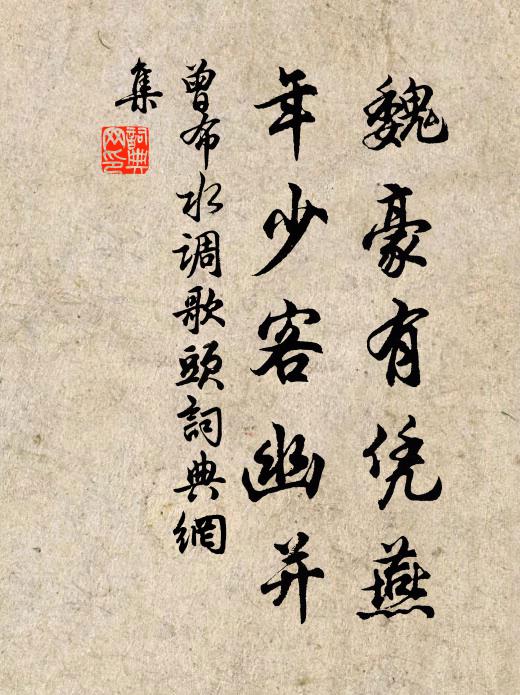 魏豪有凭燕
年少客幽并
曾布水调歌头詞典網
集
詞典
网印